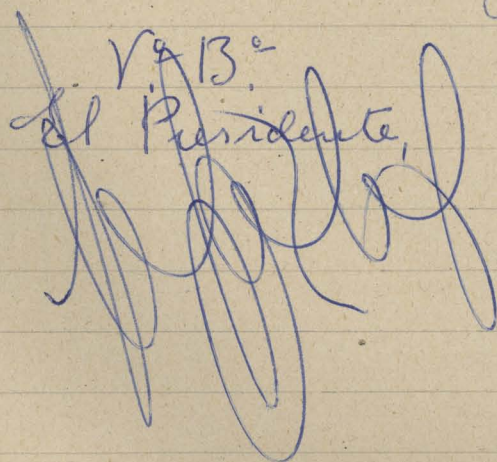 Vº Bº
El Presidente,